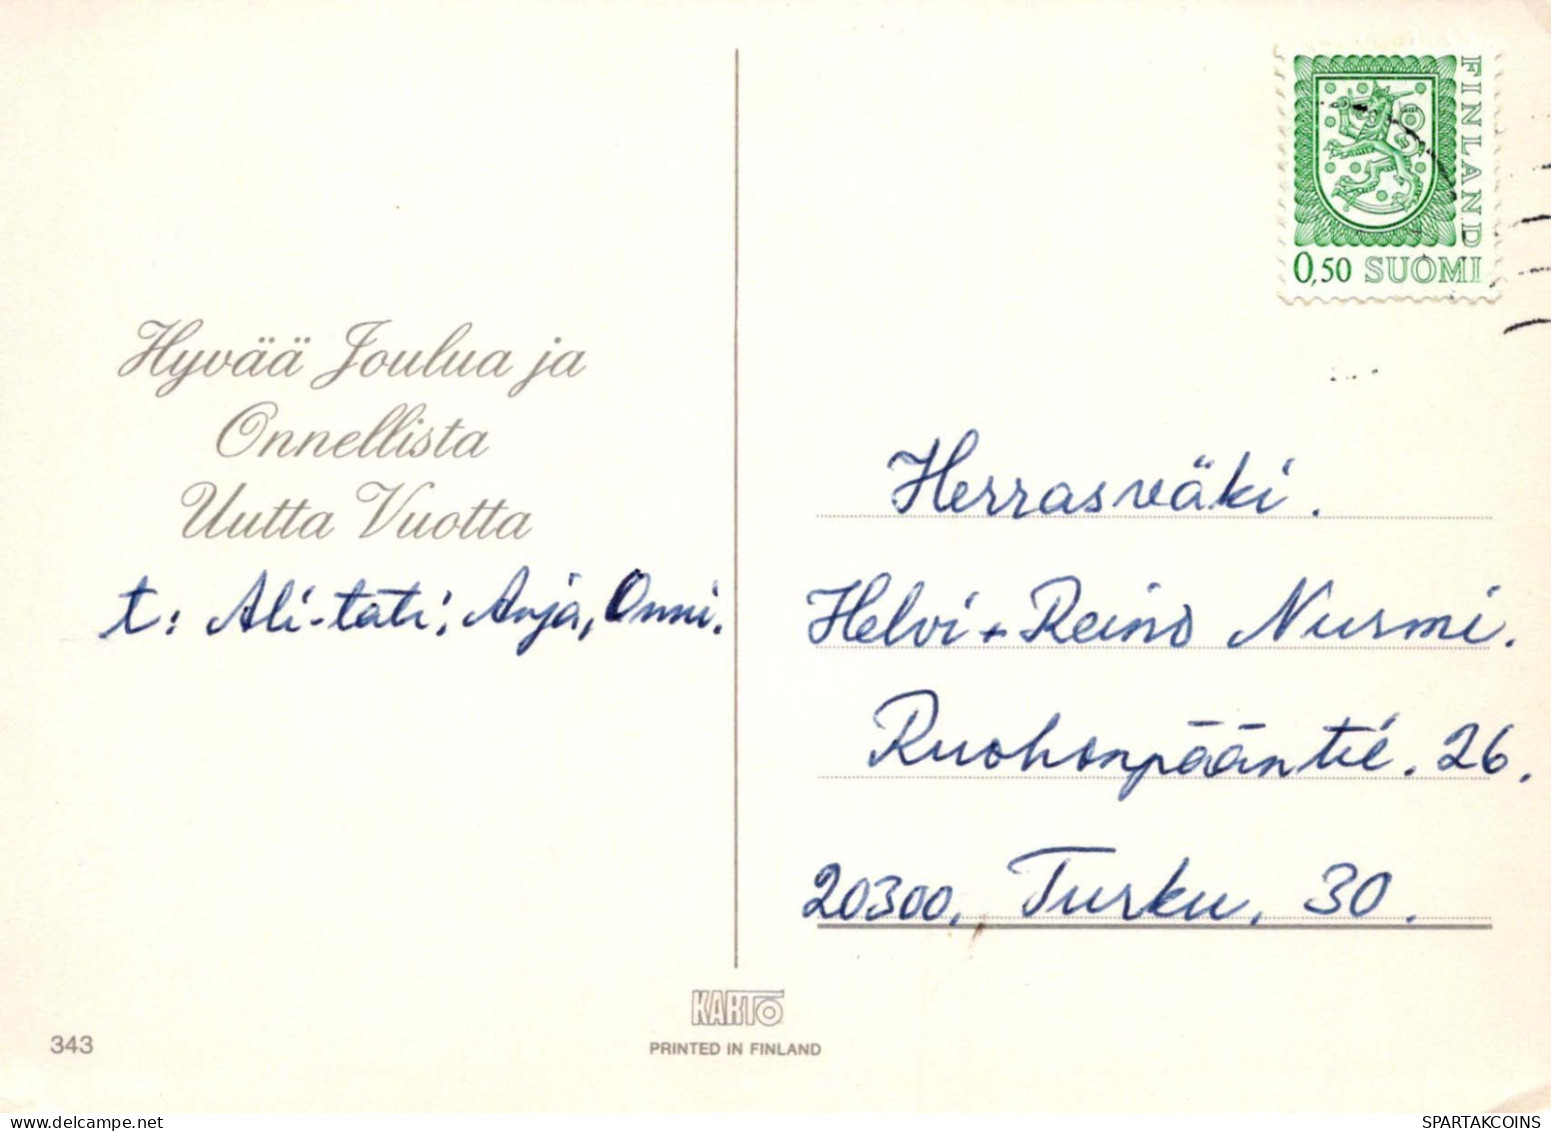 Hyvää Joulua ja
Onnellista
Uutta Vuotta
t: Ali-täti, Arja, Onni.
FINLAND
0,50 SUOMI
Herrasväki.
Helvi + Reino Nurmi.
Ruohonpääntie. 26.
20300, Turku, 30.
KARTO
PRINTED IN FINLAND
343
SPARTAKCOINS